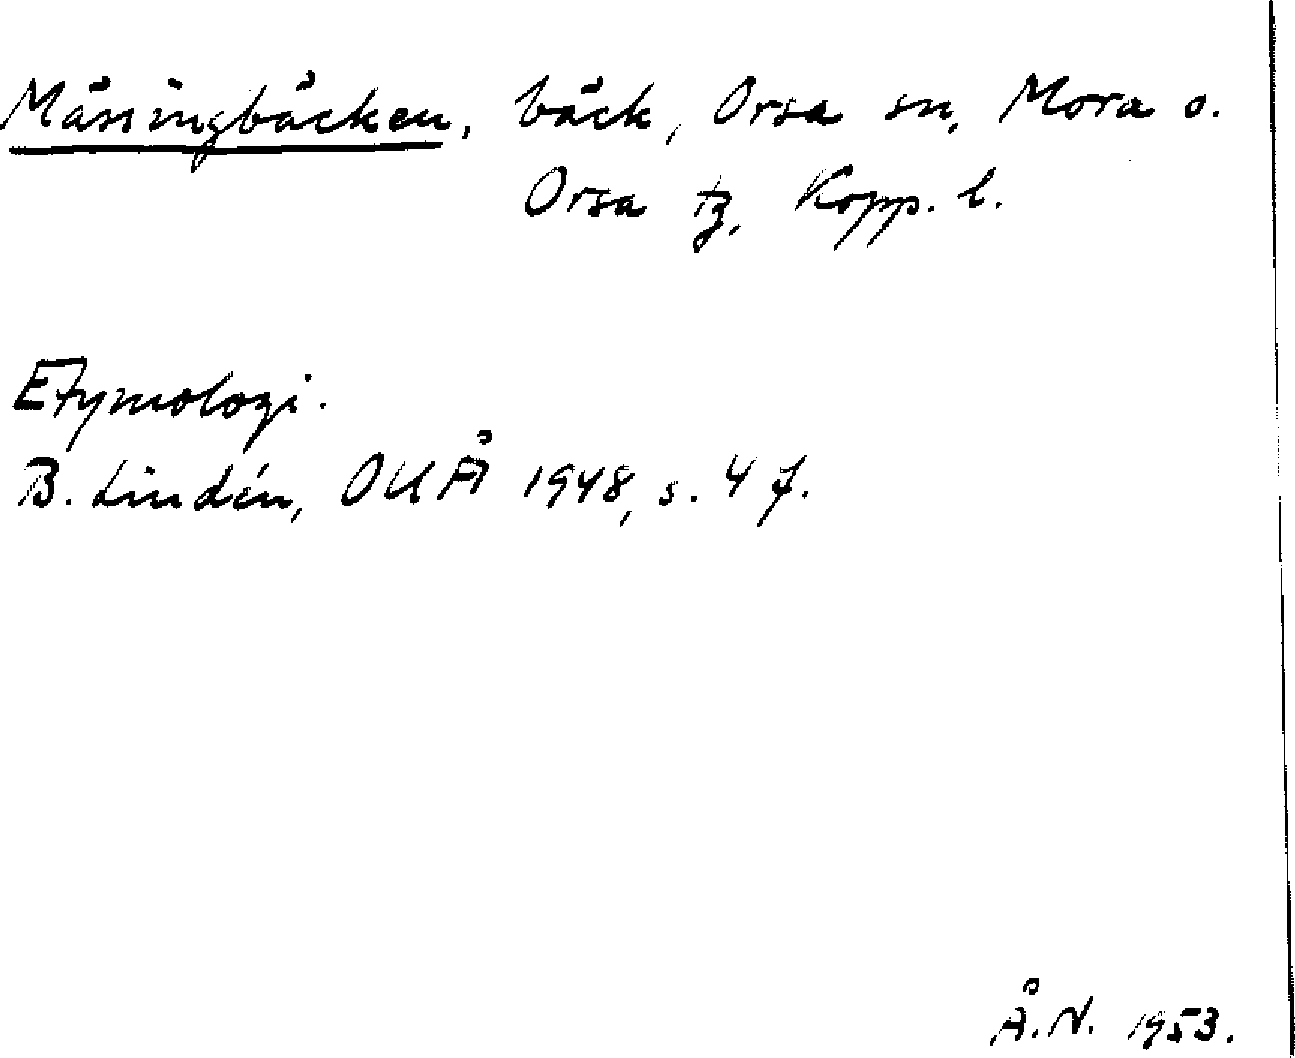 Mässingbäcken, bäck, Orsa sn, Mora o.
Orsa tg, Kopp. l.
Etymologi.
B. Lindén, OUÅ 1948, s. 4 f.
Å.N. 1953.